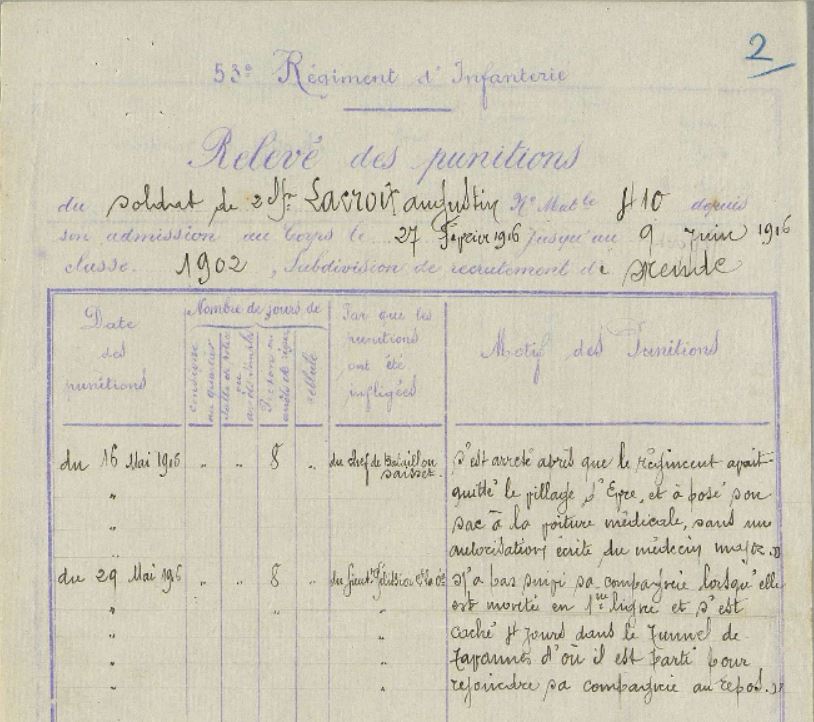 2
53e Régiment d'Infanterie
Relevé des punitions
du soldat de 2e Lacroix augustin No Mat le 410 depuis
son admission au Corps le 27 Février 1916 jusqu'au 9 Juin 1916
classe. 1902, Subdivision de recrutement de Mende
Date des punitions
Nombre de jours de
consigne au quartier
salle de police ou
Prison ou
cellule
Par que les punitions ont été infligées
Motif des Punitions
du 16 Mai 1916 " " 8 " du chef de Bataillon saisset.
s'est arreté abris que le régiment avait
" quitté le village et à posé son
" sac à la voiture médicale, sans une
" autorisation écrite du médecin major.»
du 29 Mai 1916 " " 8 " du lieut
N'a pas suivi sa compagnie lorsqu'elle
" " est montée en 1ere ligne et s'est
" " caché 4 jours dans le Tunnel de
" " Tavannes d'où il est parti pour
" " rejoindre sa compagnie au repos.»